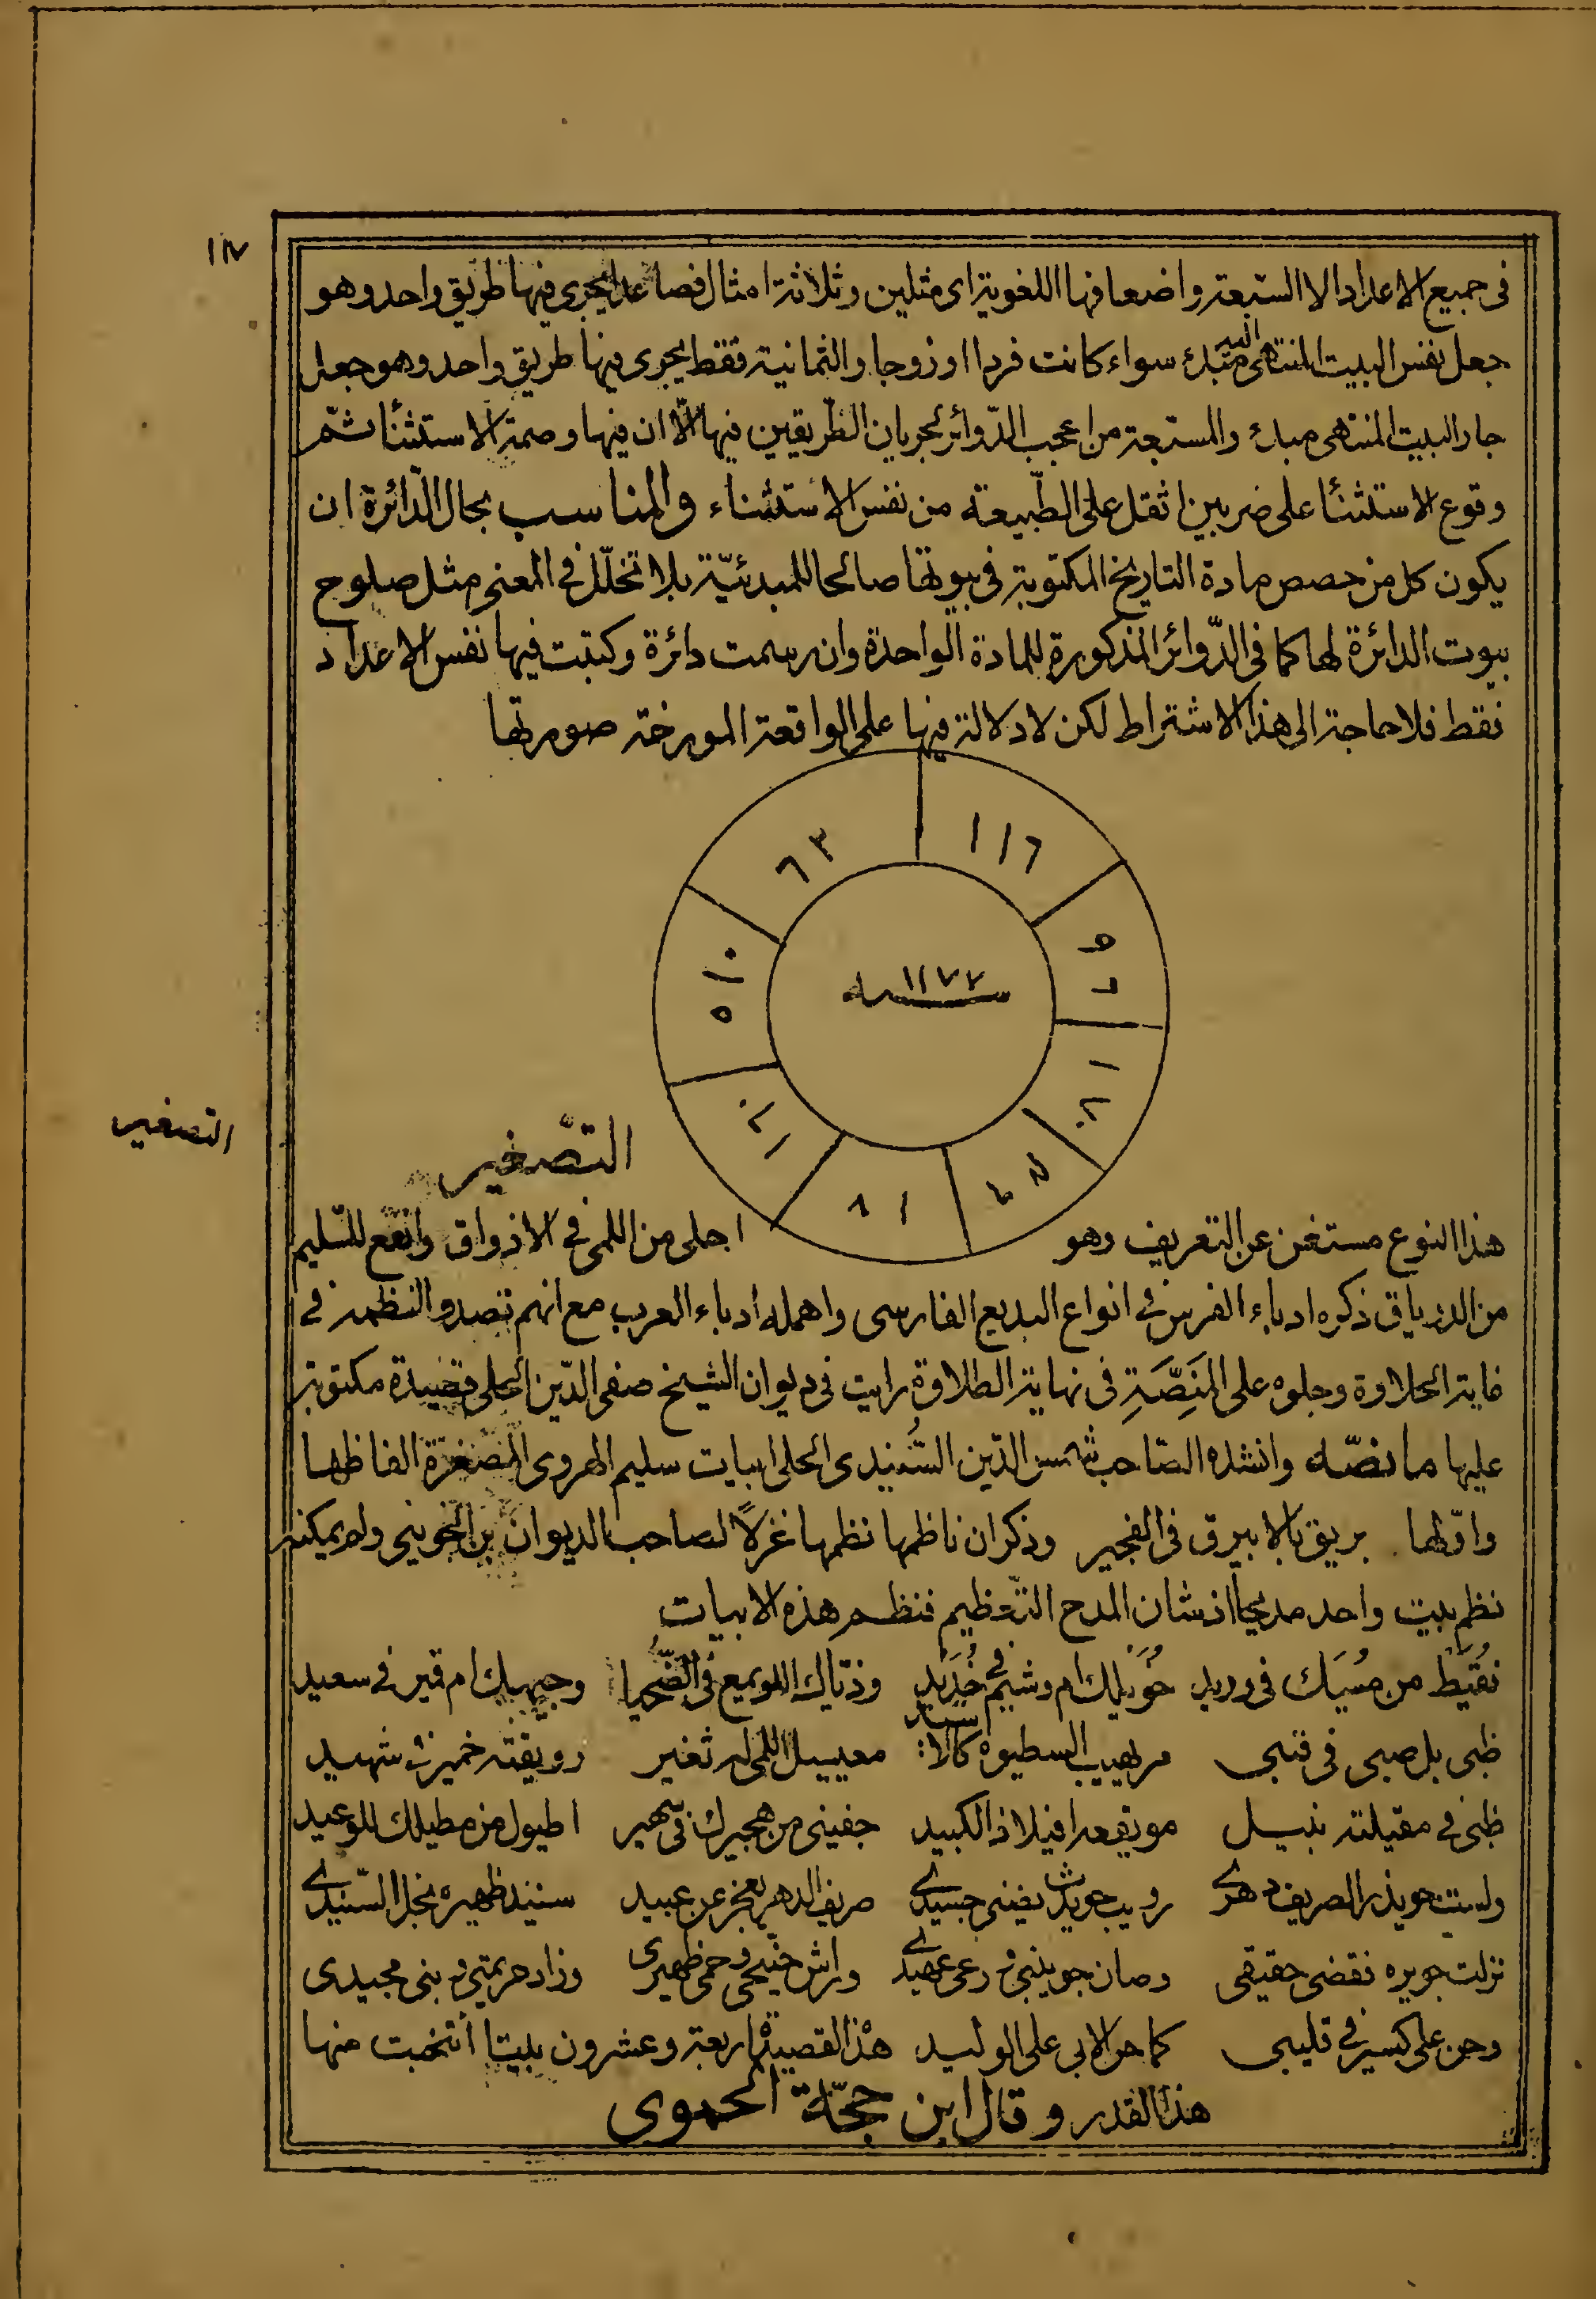 ١١٧
فى جميع الاعداد الا السبعة واضعافها اللغوية اى مثلين وثلاثة امثال فصاعدا يجرى فيها طريق واحد وهو
جعل نفس البيت المنتهى اليه مبدء سواء كانت فردا او زوجا والثمانية فقط يجرى فيها طريق واحد وهو جعل
جار البيت المنتهى مبدء والسبعة من اعجب الدّوائر لجريان الطّريقين فيها الّا ان فيها وصمة الاستثنا ثمّ
وقوع الاستثنا على ضربين اثقل على الطّبيعة من نفس الاستثناء والمناسب بحال الدّائرة ان
يكون كل من حصص مادة التاريخ المكتوبة فى بيوتها صالحا للمبدئيّة بلا تخلّل فى المعنى مثل صلوح
بيوت الدائرة لها كما فى الدّوائر المذكورة للمادة الواحدة وان رسمت دائرة وكتبت فيها نفس الاعداد
فقط فلا حاجة الى هذا الاشتراط لكن لا دلالة فيها على الواقعة المورخة صورتها
١١٦
٦٣
٥١٠
٨١
١١٧٧ سنه
التصغير
التّصغير
هذا النوع مستغن عن التعريف وهو اجلى من اللمى فى الاذواق وانفع للسّليم
من الدرياق ذكره ادباء الفرس فى انواع البديع الفارسى واهمله ادباء العرب مع انهم تصدوا لنظمه فى
غاية الحلاوة وجلوه على المَنِصَّةِ فى نهاية الطلاوة رايت فى ديوان الشيخ صفى الدّين الحلى قصيدة مكتوبة
عليها ما نصّه وانشده الصّاحب شمس الدّين السُّنيدى الحلى ابيات سليم الهروى المصغرة الفاظها
واوّلها بريق بالابيرق فى الفجير وذكر ان ناظمها نظمها غزلًا لصاحب الديوان بن الجوينى ولم يمكنه
نظم بيت واحد مديحا اذ شان المدح التّعظيم فنظم هذه الابيات
نُقَيط من مُسَيك فى وريد خُوَيلك ام وشيم فى خُدَيد وذيّاك اللويمع فى الضُّحيا وجيهك ام قمير فى سعيد
ظبى بل صبى فى قبى مريهيب السطيوة كالاسيد معيسيل اللمى له ثغير رويقته خمير شهيد
ظبى فى مقيلته نبيل مويقعه افيلاذ الكبيد جفينى من هجيرك فى سهير اطيول من مطيلك للوعيد
ولست حويذر الصريف دهرى رويب حويدث يضنى جسيدى صريف الدهر يعجز عن عبيد سنيد ظهيره نجل السّنيدى
نزلت جويره فقضى حقيقى وصان جوينبى ورعى عهيدى وراش جنيحى وحمى ظهيرى وزاد حريمتى وبنى مجيدى
وحن على كسير فى قليبى كما حن الابى على الوليد هذه القصيدة اربعة وعشرون بيتا انتخبت منها
هذا القدر وقال ابن حجّة الحموى